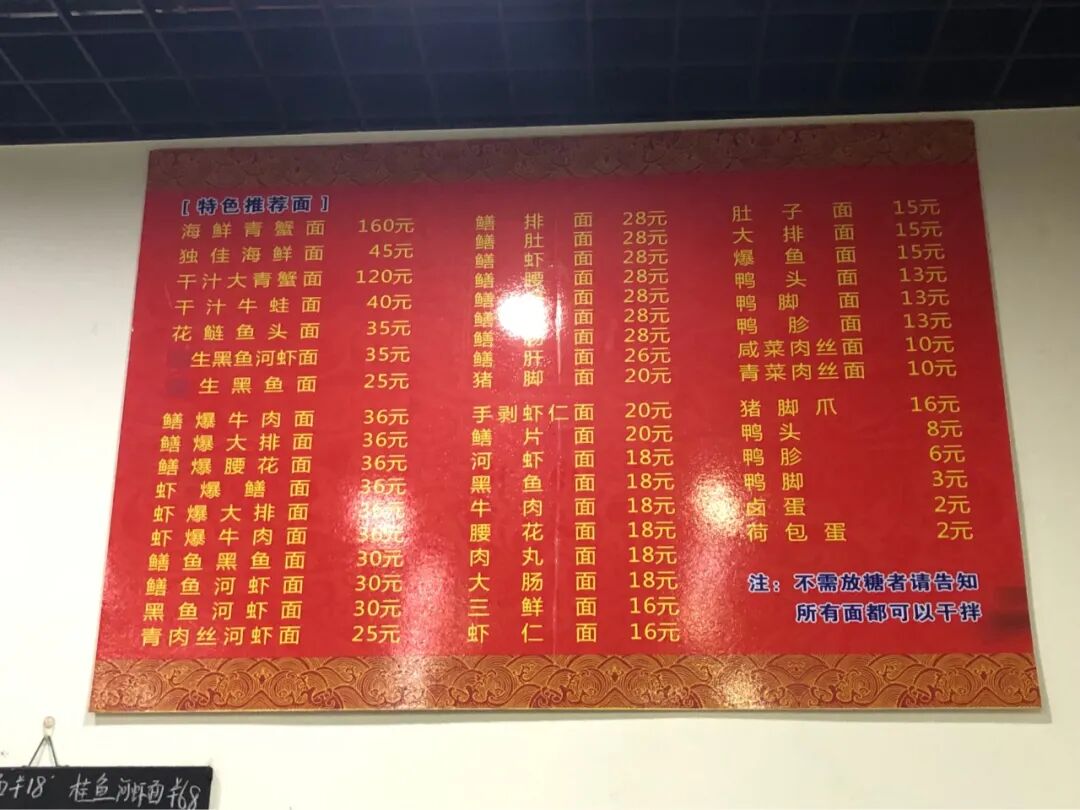 [ 特色推荐面 ]
海鲜青蟹面 160元
独佳海鲜面 45元
干汁大青蟹面 120元
干汁牛蛙面 40元
花鲢鱼头面 35元
生黑鱼河虾面 35元
生黑鱼面 25元
鳝爆牛肉面 36元
鳝爆大排面 36元
鳝爆腰花面 36元
虾爆鳝面 36元
虾爆大排面 36元
虾爆牛肉面 36元
鳝鱼黑鱼面 30元
鳝鱼河虾面 30元
黑鱼河虾面 30元
青肉丝河虾面 25元
鳝排面 28元
鳝肚面 28元
鳝虾面 28元
鳝腰面 28元
鳝面 28元
鳝面 28元
鳝面 28元
鳝肝面 26元
猪脚面 20元
手剥虾仁面 20元
鳝片面 20元
河虾面 18元
黑鱼面 18元
牛肉面 18元
腰花面 18元
肉丸面 18元
大肠面 18元
三鲜面 16元
虾仁面 16元
肚子面 15元
大排面 15元
爆鱼面 15元
鸭头面 13元
鸭脚面 13元
鸭胗面 13元
咸菜肉丝面 10元
青菜肉丝面 10元
猪脚爪 16元
鸭头 8元
鸭胗 6元
鸭脚 3元
卤蛋 2元
荷包蛋 2元
注：不需放糖者请告知
所有面都可以干拌
面¥18 桂鱼河虾面¥68